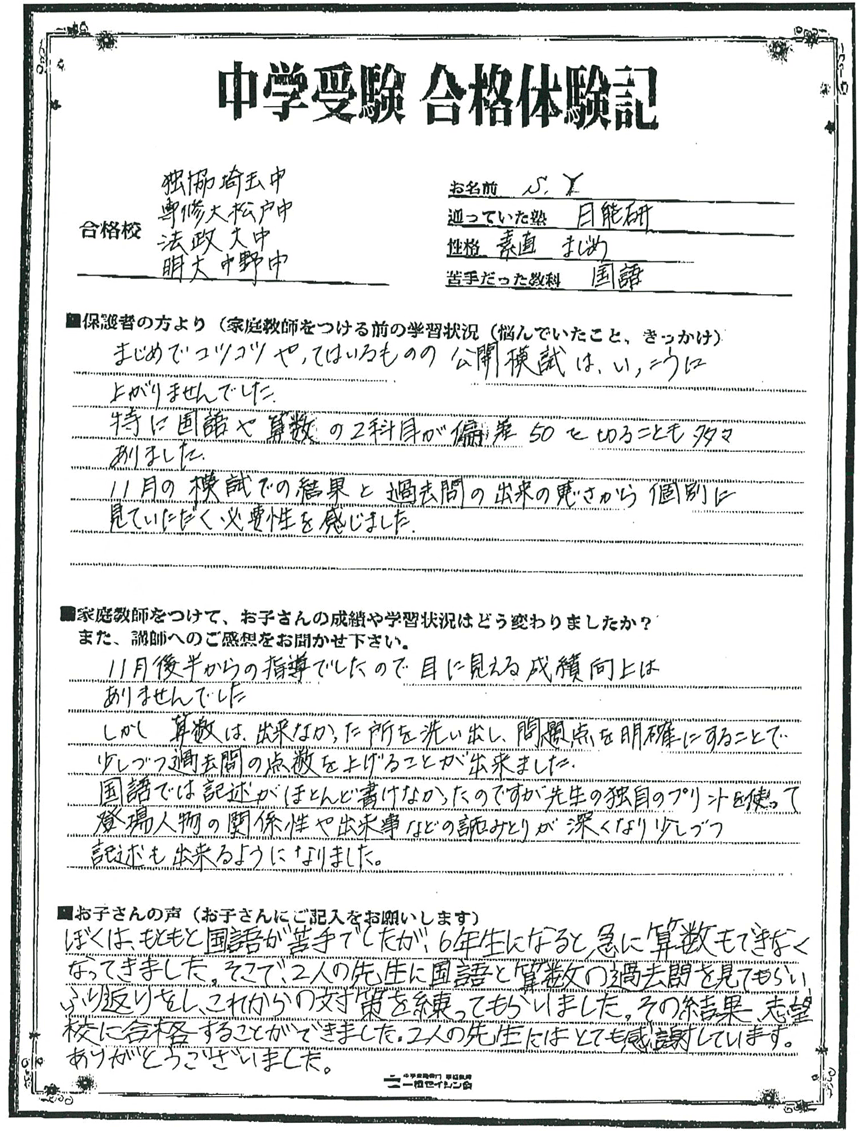 中学受験 合格体験記
合格校
独協埼玉中
専修大松戸中
法政大中
明大中野中
お名前 S.Y
通っていた塾 日能研
性格 素直 まじめ
苦手だった教科 国語
■保護者の方より（家庭教師をつける前の学習状況（悩んでいたこと、きっかけ）
まじめでコツコツやってはいるものの 公開模試は、いっこうに
上がりませんでした.
特に国語や算数の2科目が偏差 50を切ることも多々
ありました.
11月の模試での結果と過去問の出来の悪さから個別に
見ていただく必要性を感じました.
■家庭教師をつけて、お子さんの成績や学習状況はどう変わりましたか？
また、講師へのご感想をお聞かせ下さい。
11月後半からの指導でしたので目に見える成績向上は
ありませんでした
しかし 算数は、出来なかった所を洗い出し、問題点を明確にすることで
少しづつ過去問の点数を上げることが出来ました.
国語では記述がほとんど書けなかったのですが先生の独自のプリントを使って
登場人物の関係性や出来事などの読みとりが深くなり少しづつ
記述も出来るようになりました。
■お子さんの声（お子さんにご記入をお願いします）
ぼくは、もともと国語が苦手でしたが、6年生になると急に算数もできなく
なってきました。そこで、2人の先生に国語と算数の過去問を見てもらい
ふり返りをし、これからの対策を練ってもらいました。その結果、志望
校に合格することができました。2人の先生にはとても感謝しています。
ありがとうございました。